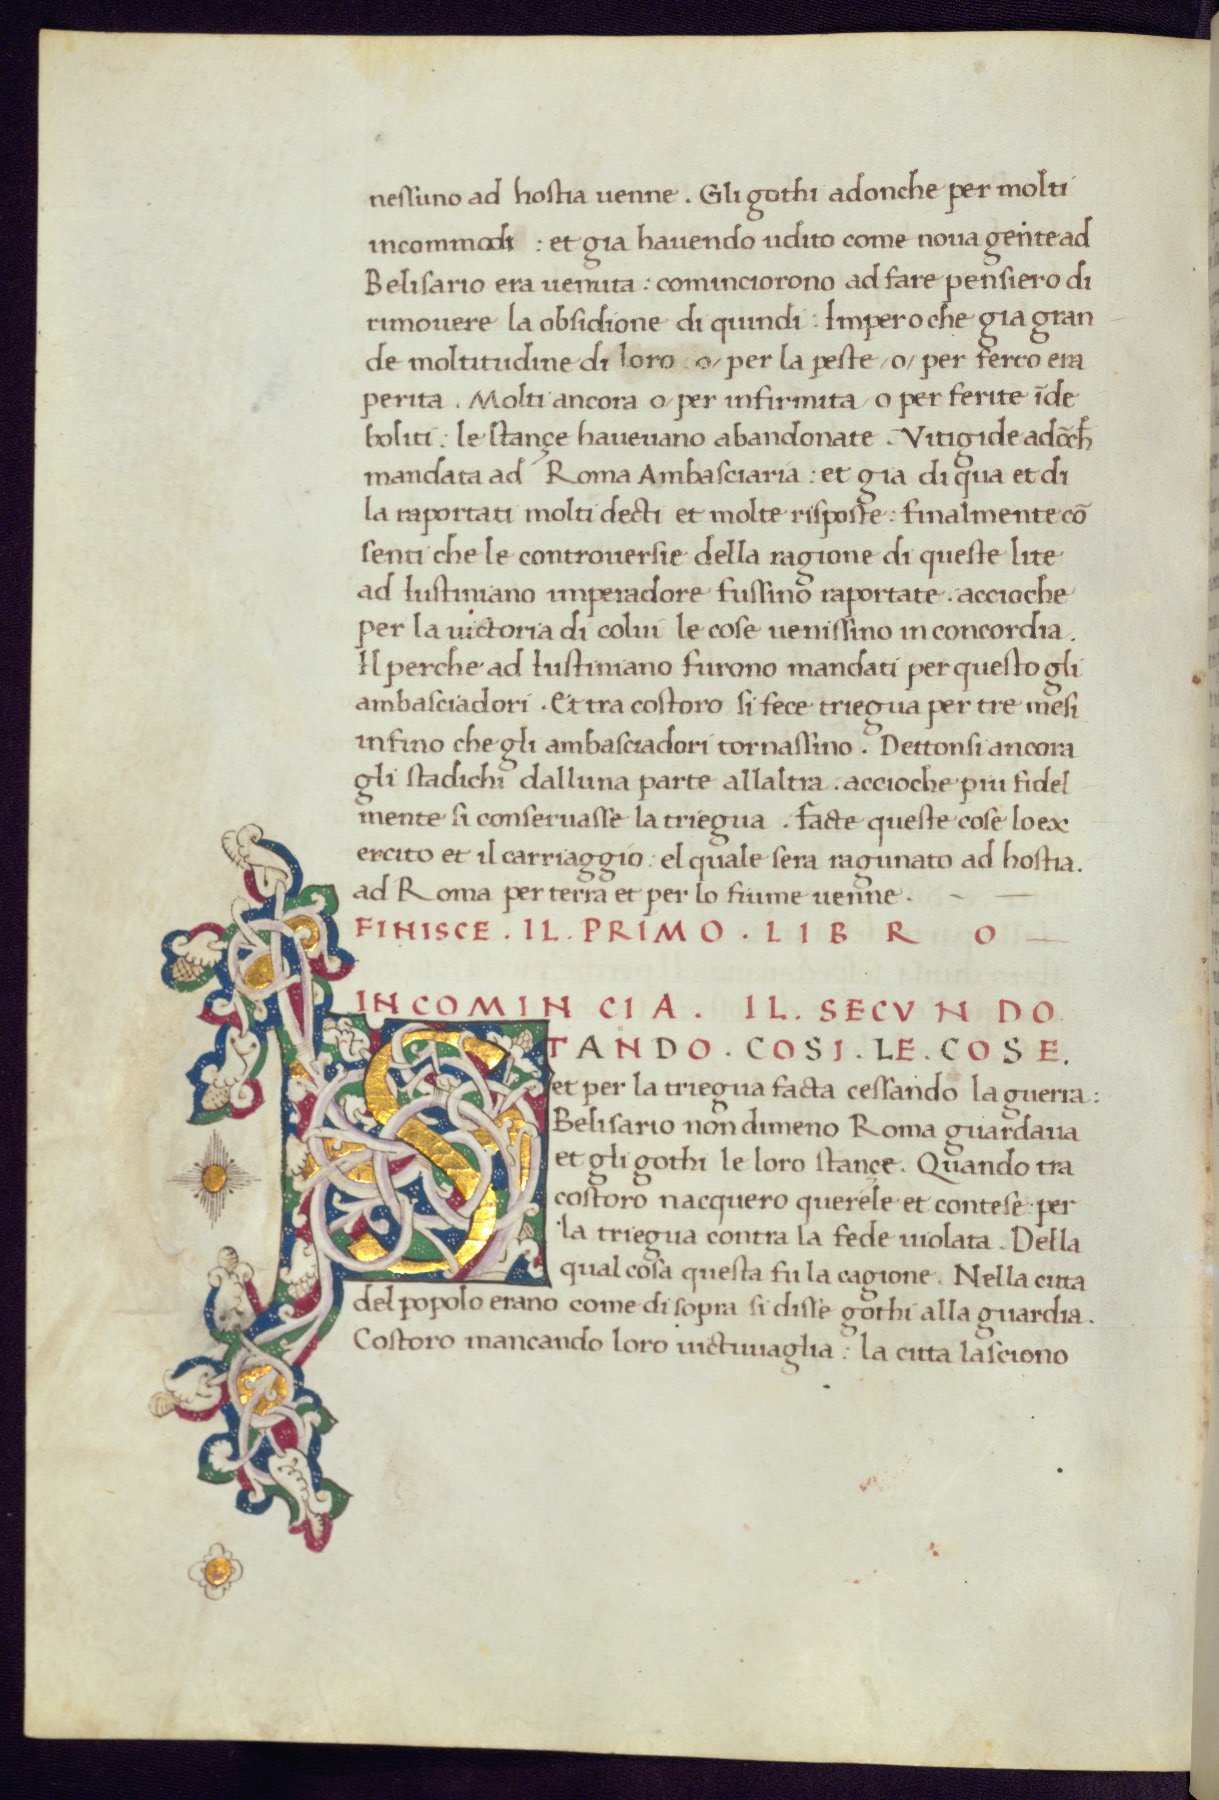 nessuno ad hostia uenne . Gli gothi adonche per molti
incommodi : et gia hauendo udito come noua gente ad
Belisario era uenuta : cominciorono ad fare pensiero di
rimouere la obsidione di quindi : Impero che gia gran
de moltitudine di loro o/ per la peste /o/ per ferro era
perita . Molti ancora o/ per infirmita / o per ferite īde
boliti : le stançe haueuano abandonate . Vitigide adōch
mandata ad Roma Ambasciaria : et gia di qua et di
la raportati molti decti et molte risposte : finalmente cō
senti che le controuersie della ragione di queste lite
ad Iustiniano imperadore fussino raportate . accioche
per la uictoria di colui le cose uenissino in concordia .
Il perche ad Iustiniano furono mandati per questo gli
ambasciadori . Et tra costoro si fece triegua per tre mesi
infino che gli ambasciadori tornassino . Dettonsi ancora
gli stadichi dalluna parte allaltra . accioche piu fidel
mente si conseruasse la triegua . facte queste cose lo ex
ercito et il carriaggio : el quale sera ragunato ad hostia .
ad Roma per terra et per lo fiume uenne .
FINISCE . IL . PRIMO . LIBRO
INCOMINCIA . IL . SECVNDO
STANDO . COSI . LE . COSE .
et per la triegua facta cessando la guerra :
Belisario non dimeno Roma guardaua
et gli gothi le loro stançe . Quando tra
costoro nacquero querele et contese per
la triegua contra la fede uiolata . Della
qual cosa questa fu la cagione . Nella citta
del popolo erano come di sopra si disse gothi alla guardia .
Costoro mancando loro uictuuaglia : la citta lasciono